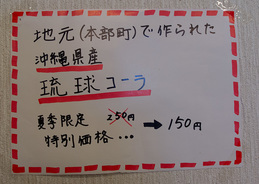 地元(本部町)で作られた
沖縄県産
琉球コーラ
夏季限定 250円 → 150円
特別価格・・・